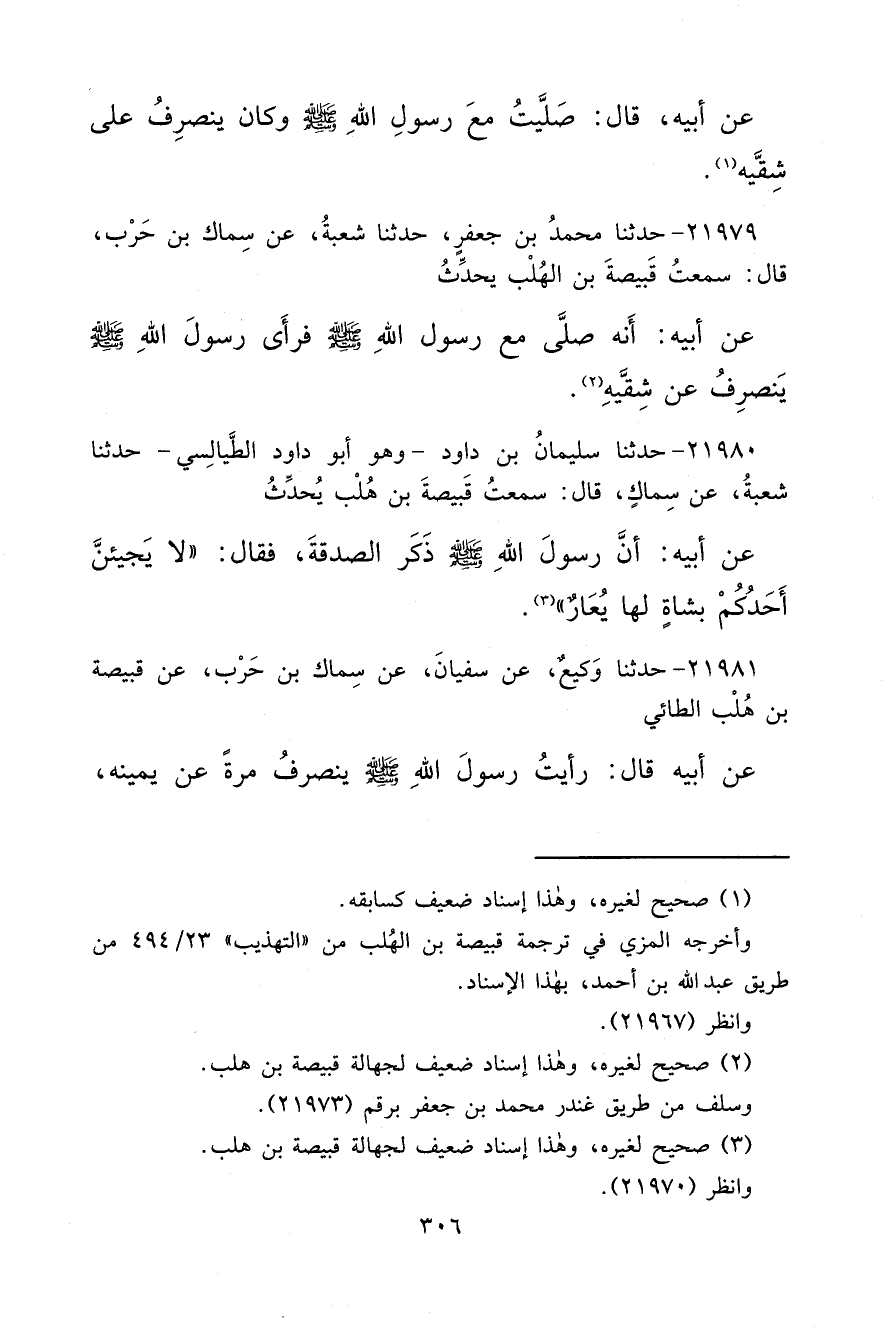 عن أبيه، قال: صَلَّيتُ معَ رسولِ اللهِ ﷺ وكان ينصرِفُ على
شِقَّيه(١).
٢١٩٧٩- حدثنا محمدُ بن جعفرٍ، حدثنا شعبةُ، عن سِماك بن حَرْب،
قال: سمعتُ قَبيصةَ بن الهُلْب يحدِّثُ
عن أبيه: أَنه صلَّى مع رسول اللهِ ﷺ فرأَى رسولَ اللهِ ﷺ
يَنصرِفُ عن شِقَّيهِ(٢).
٢١٩٨٠- حدثنا سليمانُ بن داود -وهو أبو داود الطَّيالِسي- حدثنا
شعبةُ، عن سِماكٍ، قال: سمعتُ قَبيصةَ بن هُلْب يُحدِّثُ
عن أبيه: أنَّ رسولَ اللهِ ﷺ ذَكَر الصدقةَ، فقال: «لا يَجيئنَّ
أَحَدُكُمْ بشاةٍ لها يُعَارٌ»(٣).
٢١٩٨١- حدثنا وَكيعٌ، عن سفيانَ، عن سِماك بن حَرْب، عن قبيصة
بن هُلْب الطائي
عن أبيه قال: رأيتُ رسولَ اللهِ ﷺ ينصرفُ مرةً عن يمينه،
(١) صحيح لغيره، وهٰذا إسناد ضعيف كسابقه.
وأخرجه المزي في ترجمة قبيصة بن الهُلب من «التهذيب» ٤٩٤/٢٣ من
طريق عبدالله بن أحمد، بهٰذا الإسناد.
وانظر (٢١٩٦٧).
(٢) صحيح لغيره، وهٰذا إسناد ضعيف لجهالة قبيصة بن هلب.
وسلف من طريق غندر محمد بن جعفر برقم (٢١٩٧٣).
(٣) صحيح لغيره، وهٰذا إسناد ضعيف لجهالة قبيصة بن هلب.
وانظر (٢١٩٧٠).
٣٠٦